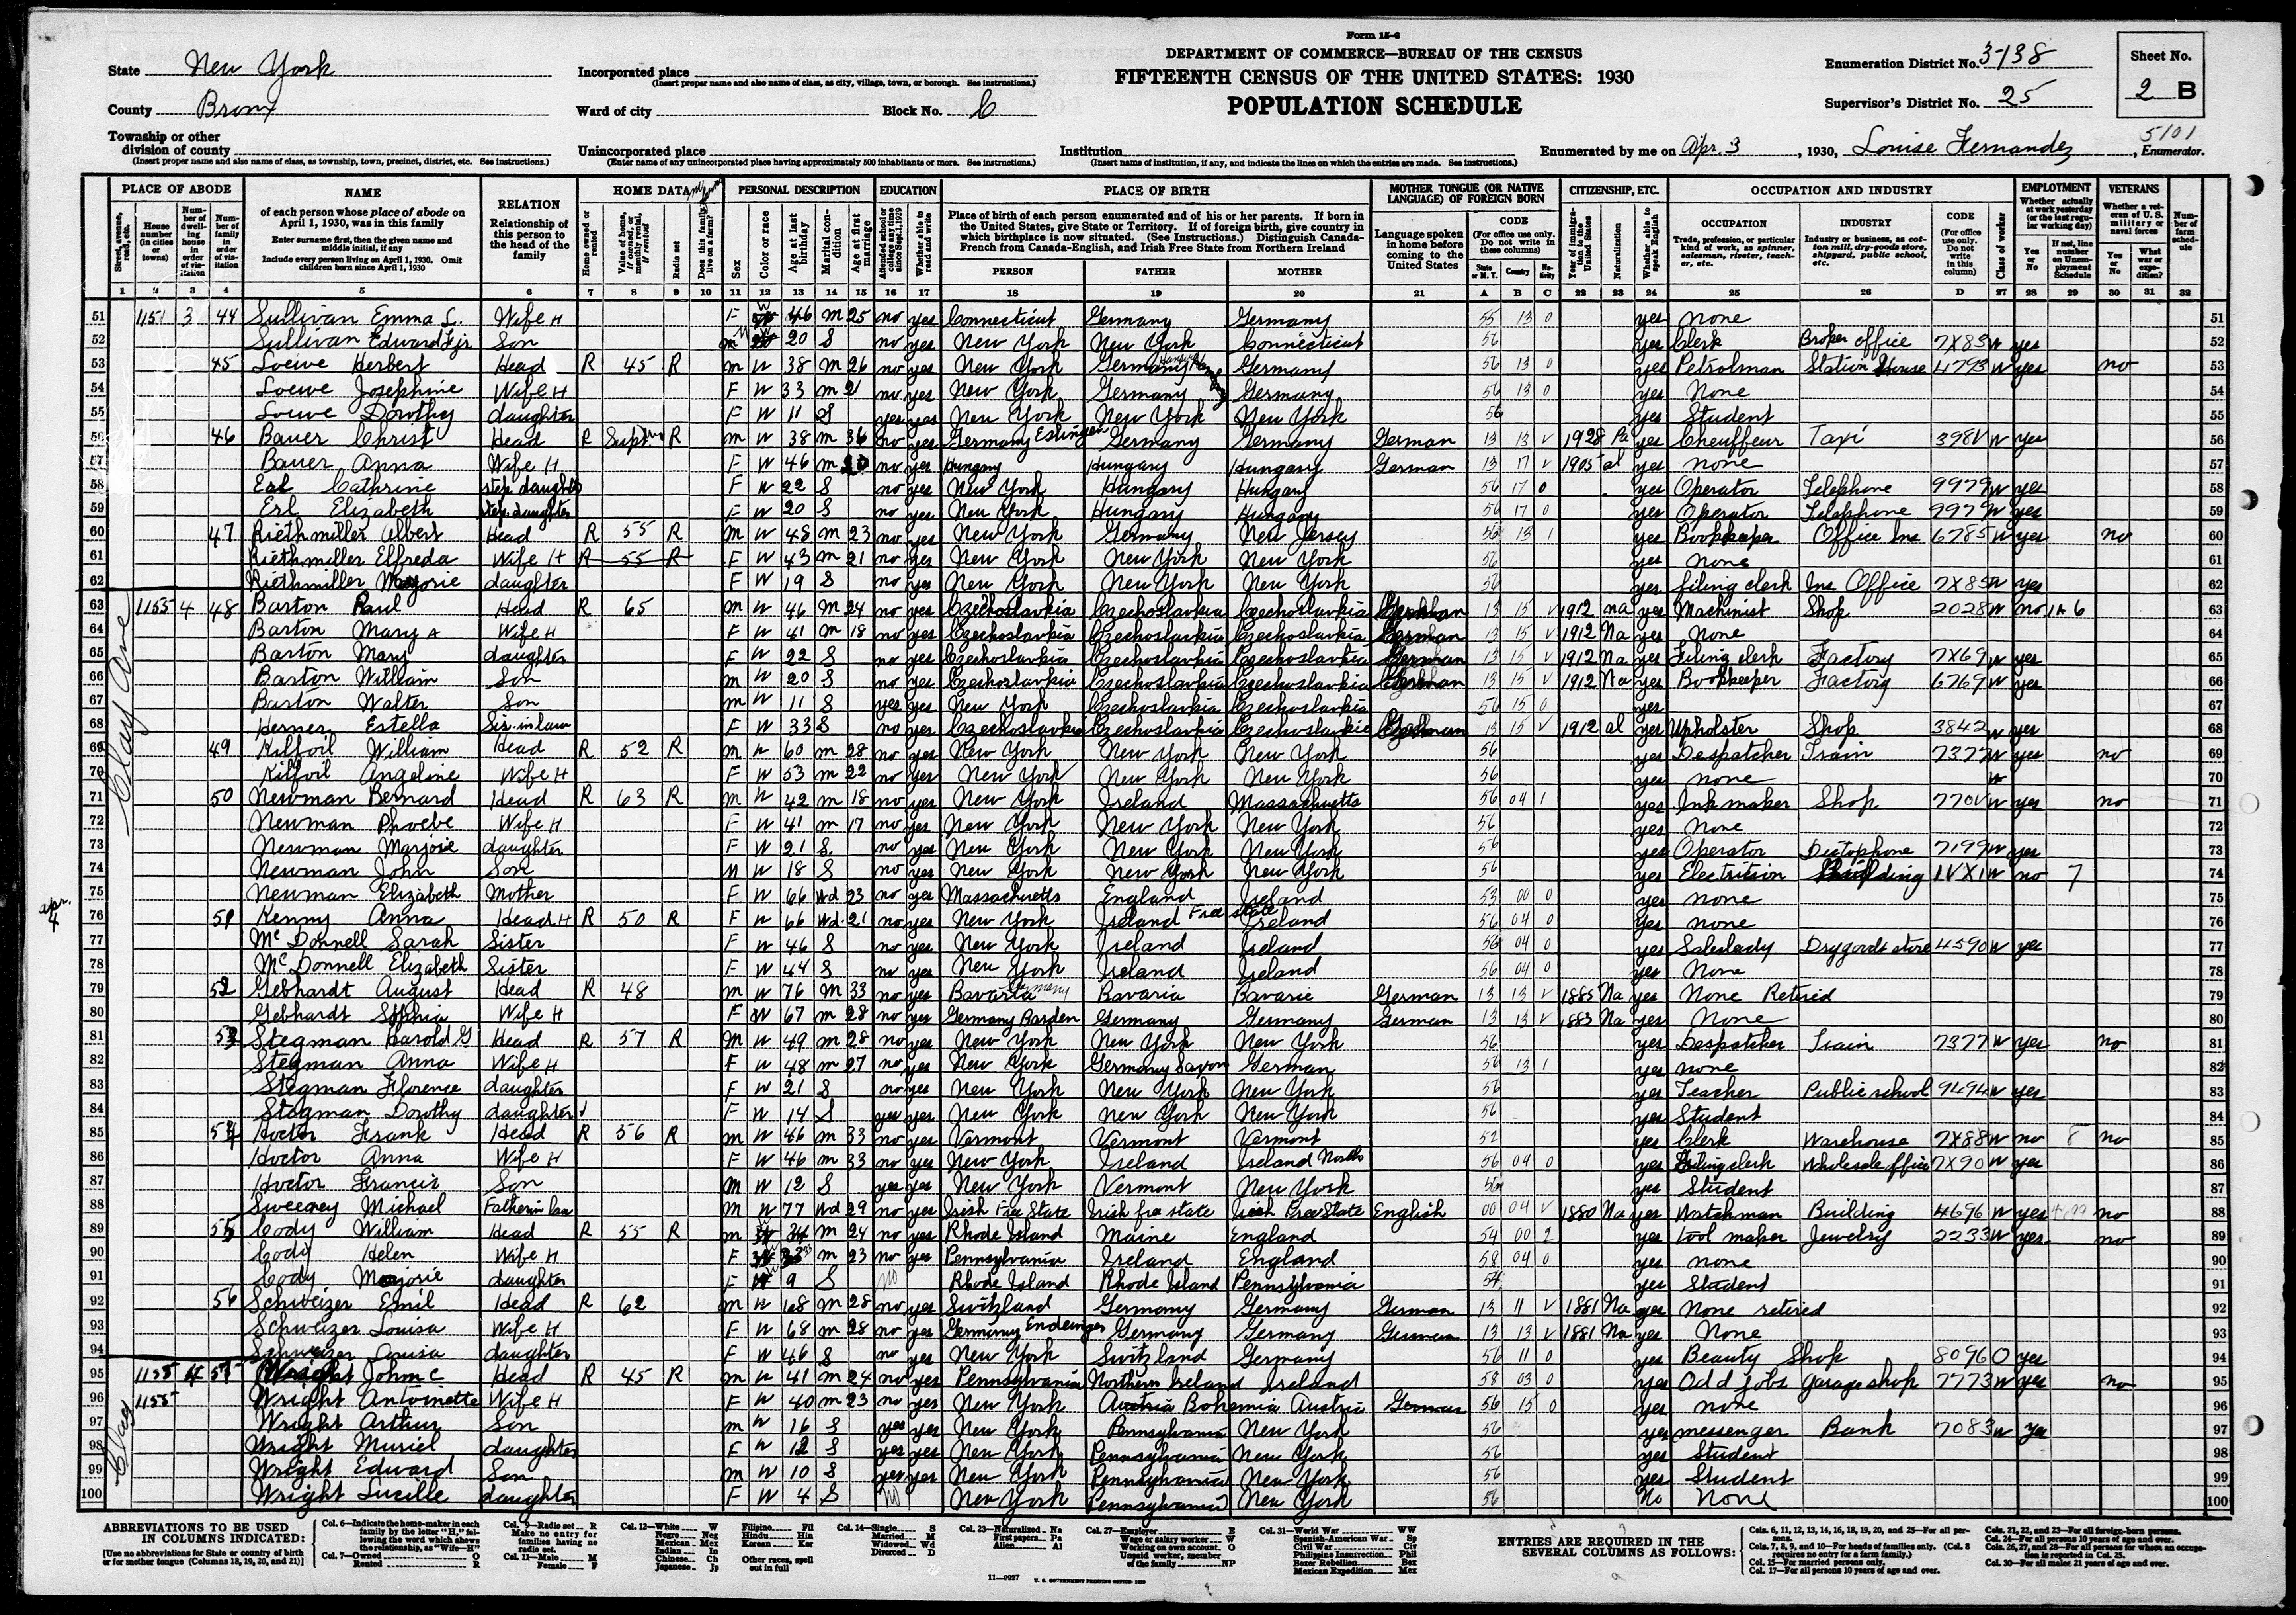 Form 15-6
DEPARTMENT OF COMMERCE—BUREAU OF THE CENSUS
FIFTEENTH CENSUS OF THE UNITED STATES: 1930
POPULATION SCHEDULE
State New York
County Bronx
Township or other division of county
(Insert proper name and also name of class, as township, town, precinct, district, etc. See instructions.)
Incorporated place
(Insert proper name and also name of class, as city, village, town, or borough. See instructions.)
Ward of city Block No. C
Unincorporated place
(Enter name of any unincorporated place having approximately 500 inhabitants or more. See instructions.)
Institution
(Insert name of institution, if any, and indicate the lines on which the entries are made. See instructions.)
Enumeration District No. 3-138
Supervisor's District No. 25
Sheet No. 2 B
5101
Enumerated by me on Apr. 3, 1930, Louise Fernandez, Enumerator.
PLACE OF ABODE NAME RELATION HOME DATA PERSONAL DESCRIPTION EDUCATION PLACE OF BIRTH MOTHER TONGUE (OR NATIVE LANGUAGE) OF FOREIGN BORN CITIZENSHIP, ETC. OCCUPATION AND INDUSTRY EMPLOYMENT VETERANS
51 1151 3 44 Sullivan Emma L. Wife H F W 46 M 25 no yes Connecticut Germany Germany 55 13 0 yes none 51
52 Sullivan Edward F jr Son M W 20 S no yes New York New York Connecticut 56 yes Clerk Broker office 7X83 W yes 52
53 45 Loewe Herbert Head R 45 R M W 38 M 26 no yes New York Germany Germany 56 13 0 yes Petrolman Station House 4793 W yes no 53
54 Loewe Josephine Wife H F W 33 M 21 no yes New York Germany Germany 56 13 0 yes None 54
55 Loewe Dorothy daughter F W 11 S yes yes New York New York New York 56 yes Student 55
56 46 Bauer Christ Head R Supt R M W 38 M 36 no yes Germany Eslingen Germany Germany German 13 13 V 1928 Pa yes Cheuffeur Taxi 398V W yes 56
57 Bauer Anna Wife H F W 46 M 20 no yes Hungary Hungary Hungary German 13 17 V 1905 al yes none 57
58 Erl Cathrine step daughter F W 22 S no yes New York Hungary Hungary 56 17 0 yes Operator Telephone 9979 W yes 58
59 Erl Elizabeth step daughter F W 20 S no yes New York Hungary Hungary 56 17 0 yes Operator Telephone 9979 W yes 59
60 47 Riethmiller Albert Head R 55 R M W 48 M 23 no yes New York Germany New Jersey 56 13 1 yes Bookkeeper Office Ins 6785 W yes no 60
61 Riethmiller Elfreda Wife H R 55 R F W 43 M 21 no yes New York New York New York 56 yes none 61
62 Riethmiller Marjorie daughter F W 19 S no yes New York New York New York 56 yes filing clerk Ins Office 7X85 W yes 62
63 1155 4 48 Barton Paul Head R 65 M W 46 M 24 no yes Czechoslavkia Czechoslavkia Czechoslavkia German 13 15 V 1912 na yes Machinist Shop 2028 W no 1A 6 63
64 Barton Mary A Wife H F W 41 M 18 no yes Czechoslavkia Czechoslavkia Czechoslavkia German 13 15 V 1912 Na yes None 64
65 Barton Mary daughter F W 22 S no yes Czechoslavkia Czechoslavkia Czechoslavkia German 13 15 V 1912 Na yes Filing clerk Factory 7X69 W yes 65
66 Barton William Son M W 20 S no yes Czechoslavkia Czechoslavkia Czechoslavkia German 13 15 V 1912 Na yes Bookkeeper Factory 6769 W yes 66
67 Barton Walter Son M W 11 S yes yes New York Czechoslavkia Czechoslavkia 56 15 0 yes 67
68 Herner Estella Sis. in law F W 33 S no yes Czechoslavkia Czechoslavkia Czechoslavkia German 13 15 V 1912 al yes Upholster Shop 3842 W yes 68
69 49 Kilfoil William Head R 52 R M W 60 M 28 no yes New York New York New York 56 yes Despatcher Train 7377 W yes no 69
70 Kilfoil Angeline Wife H F W 53 M 22 no yes New York New York New York 56 yes none W 70
71 50 Newman Bernard Head R 63 R M W 42 M 18 no yes New York Ireland Massachuetts 56 04 1 yes Ink maker Shop 770V W yes no 71
72 Newman Phoebe Wife H F W 41 M 17 no yes New York New York New York 56 yes None 72
73 Newman Marjorie daughter F W 21 S no yes New York New York New York 56 yes Operator Dictophone 7199 W yes 73
74 Newman John Son M W 18 S no yes New York New York New York 56 yes Electrition Building 1VX1 W no 7 74
75 Newman Elizabeth Mother F W 66 Wd 23 no yes Massachuetts England Ireland 53 00 0 yes none 75
76 51 Kenny Anna Head H R 50 R F W 66 Wd 21 no yes New York Ireland Free State Ireland 56 04 0 yes none 76
77 McDonnell Sarah Sister F W 46 S no yes New York Ireland Ireland 56 04 0 yes Saleslady Drygoods store 4590 W yes 77
78 McDonnell Elizabeth Sister F W 44 S no yes New York Ireland Ireland 56 04 0 yes None 78
79 52 Gebhardt August Head R 48 M W 76 M 33 no yes Bavaria Germany Bavaria Bavarie German 13 13 V 1885 Na yes None Retired 79
80 Gebhardt Sophia Wife H F W 67 M 28 no yes Germany Barden Germany Germany German 13 13 V 1883 Na yes None 80
81 53 Stegman Harold G Head R 57 R M W 49 M 28 no yes New York New York New York 56 yes Despatcher Train 7377 W yes no 81
82 Stegman Anna Wife H F W 48 M 27 no yes New York Germany Saxon German 56 13 1 yes none 82
83 Stegman Florence daughter F W 21 S no yes New York New York New York 56 yes Teacher Public school 9494 W yes 83
84 Stegman Dorothy daughter F W 14 S yes yes New York New York New York 56 yes Student 84
85 54 Hoctor Frank Head R 56 R M W 46 M 33 no yes Vermont Vermont Vermont 52 yes Clerk Warehouse 7X88 W no 8 no 85
86 Hoctor Anna Wife H F W 46 M 33 no yes New York Ireland Ireland North 56 04 0 yes Filing clerk Wholesale office 7X90 W yes 86
87 Hoctor Francis Son M W 12 S yes yes New York Vermont New York 56 yes Student 87
88 Sweeney Michael Father in law M W 77 Wd 29 no yes Irish Free State Irish free state Irish Free State English 00 04 V 1880 Na yes Watchman Building 4696 W yes no 88
89 55 Cody William Head R 55 R M W 34 M 24 no yes Rhode Island Maine England 54 00 2 yes tool maker Jewelry 2233 W yes no 89
90 Cody Helen Wife H F W 33 M 23 no yes Pennsylvania Ireland England 58 04 0 yes none 90
91 Cody Marjorie daughter F W 9 S no Rhode Island Rhode Island Pennsylvania 54 yes Student 91
92 56 Schweizer Emil Head R 62 M W 68 M 28 no yes Switzland Germany Germany German 13 11 V 1881 Na yes None retired 92
93 Schweizer Louisa Wife H F W 68 M 28 no yes Germany Endeinger Germany Germany German 13 13 V 1881 Na yes None 93
94 Schweizer Louisa daughter F W 46 S no yes New York Switzland Germany 56 11 0 yes Beauty Shop 8096 O yes 94
95 1155 4 57 Wright John C Head R 45 R M W 41 M 24 no yes Pennsylvania Northern Ireland Ireland 58 03 0 yes Odd jobs garage shop 7773 W yes no 95
96 1155 Wright Antoinette Wife H F W 40 M 23 no yes New York Austria Bohemia Austria German 56 15 0 yes none 96
97 Wright Arthur Son M W 16 S yes yes New York Pennsylvania New York 56 yes messenger Bank 7083 W yes 97
98 Wright Muriel daughter F W 12 S yes yes New York Pennsylvania New York 56 yes Student 98
99 Wright Edward Son M W 10 S yes yes New York Pennsylvania New York 56 yes Student 99
100 Wright Lucille daughter F W 4 S no New York Pennsylvania New York 56 No None 100
Clay Ave
Apr. 4
Clay
ABBREVIATIONS TO BE USED IN COLUMNS INDICATED:
[Use no abbreviations for State or country of birth or for mother tongue (Columns 18, 19, 20, and 21)]
ENTRIES ARE REQUIRED IN THE SEVERAL COLUMNS AS FOLLOWS:
11—9927 U. S. GOVERNMENT PRINTING OFFICE: 1930